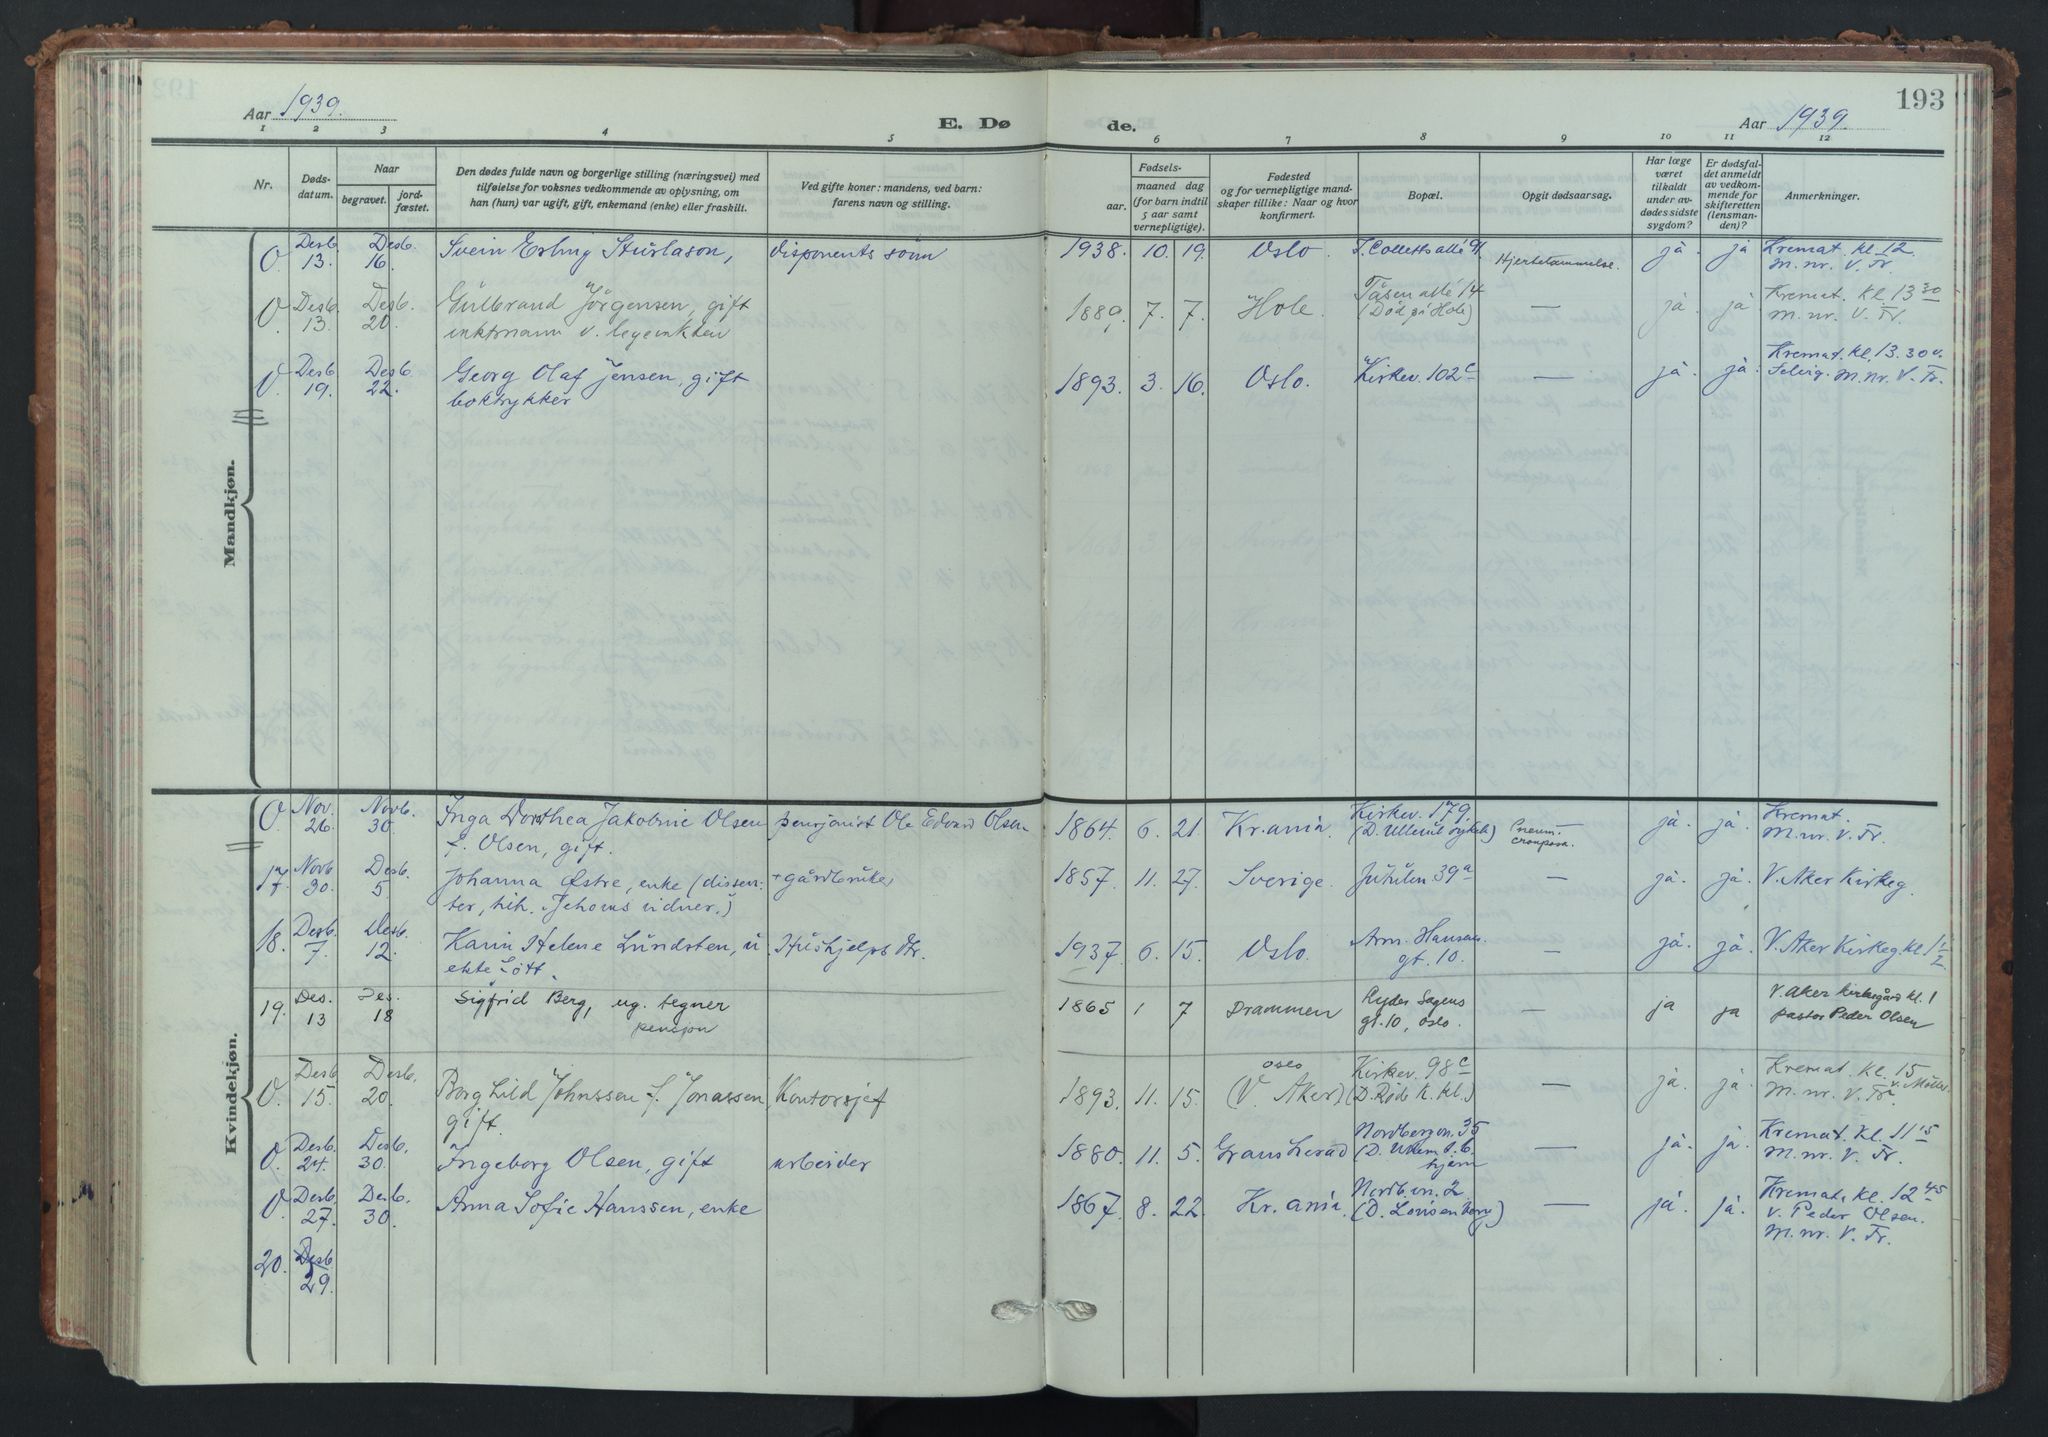 192
Aar 1939.
E. Dø
de.
Aar 1939.
193
1 2 3 4 5 6 7 8 9 10 11 12
Nr.
Døds-
datum.
Naar
begravet. jord-
fæstet.
Den dødes fulde navn og borgerlige stilling (næringsvei) med
tilføielse for voksnes vedkommende av oplysning, om
han (hun) var ugift, gift, enkemand (enke) eller fraskilt.
Ved gifte koner: mandens, ved barn:
farens navn og stilling.
Fødsels-
aar. maaned dag
(for barn indtil
5 aar samt
vernepligtige).
Fødested
og for vernepligtige mand-
skaper tillike: Naar og hvor
konfirmert.
Bopæl.
Opgit dødsaarsag.
Har læge
været
tilkaldt
under av-
dødes sidste
sygdom?
Er dødsfal-
det anmeldt
av vedkom-
mende for
skifteretten
(lensman-
den)?
Anmerkninger.
Mandkjøn.
O. Desb. 13. Desb. 16. Svein Erling Sturlason, disponents sönn 1938. 10. 19. Oslo. J. Colletts allé 91 Hjertelammelse. ja. ja Kremat. kl. 12
M. nr. V. Fr.
O. Desb. 13. Desb. 20. Gulbrand Jörgensen, gift 1889. 7. 7. Hole. Tåsen allé 14 — ja. ja. Kremat. kl. 13 30
(Död på Hole) M. nr. V. Fr.
O. Desb. 19. Desb. 22. Georg Olaf Jensen, gift 1893. 3. 16. Oslo. Kirkev. 102 c — ja. ja. Kremat. kl. 13.30 v.
boktrykker M. nr. V. Fr.
Kvindekjøn.
O. Nov. 26. Novb. 30. Inga Dorthea Jakobine Olsen pensjonist Ole Edvard Olsen 1864. 6. 21. Kr.ania. Kirkev. 179. Pneum. ja. ja. Kremat.
f. Olsen, gift. (D. Ullevål sykeh.) crouposa. M. nr. V. Fr.
17. Novb 30. Desb. 5. Johanna Østre, enke (dissen- + gårdbruker 1857. 11. 27. Sverige. Jutulvn 39 a — ja. ja. V. Aker Kirkeg.
ter, tilh. Jehovas vidner.)
18. Desb. 7. Desb. 12. Karin Helene Lundsten, u. Hushjelps dtr. 1937. 6. 15. Oslo. Arn. Hansens — ja. ja. V. Aker Kirkeg. kl. 1 1/2
ekte född. gt. 10.
19. Des. 13 Des. 18 Sigfrid Berg, ug. tegner 1865 1 7 Drammen Ryder Sagens — ja ja V. Aker kirkegård kl. 1
pensjon gt. 10, Oslo. pastor Peder Olsen
O. Desb 15. Desb. 20. Borghild Johnssen f. Jonassen, Kontorsjef 1893. 11. 15. Oslo Kirkev. 98 c — ja. ja. Kremat. kl. 15
gift. (V. Aker) (D. Röde K. kl.) M. nr. V. Fr. v. Möller.
O. Desb. 24. Desb. 30. Ingeborg Olsen, gift arbeider 1880. 11. 5. Gransherad Nordbergvn. 35 — ja. ja. Kremat. kl. 11 15
hjem M. nr. V. Fr.
O. Desb. 27. Desb. 30. Anna Sofie Hanssen, enke 1867. 8. 22. Kr.ania. Nordb. vn. 2 — ja. ja. Kremat. kl. 12 45
(D. Lovisenberg) v. Peder Olsen.
M. nr. V. Fr.
20. Desb 29.